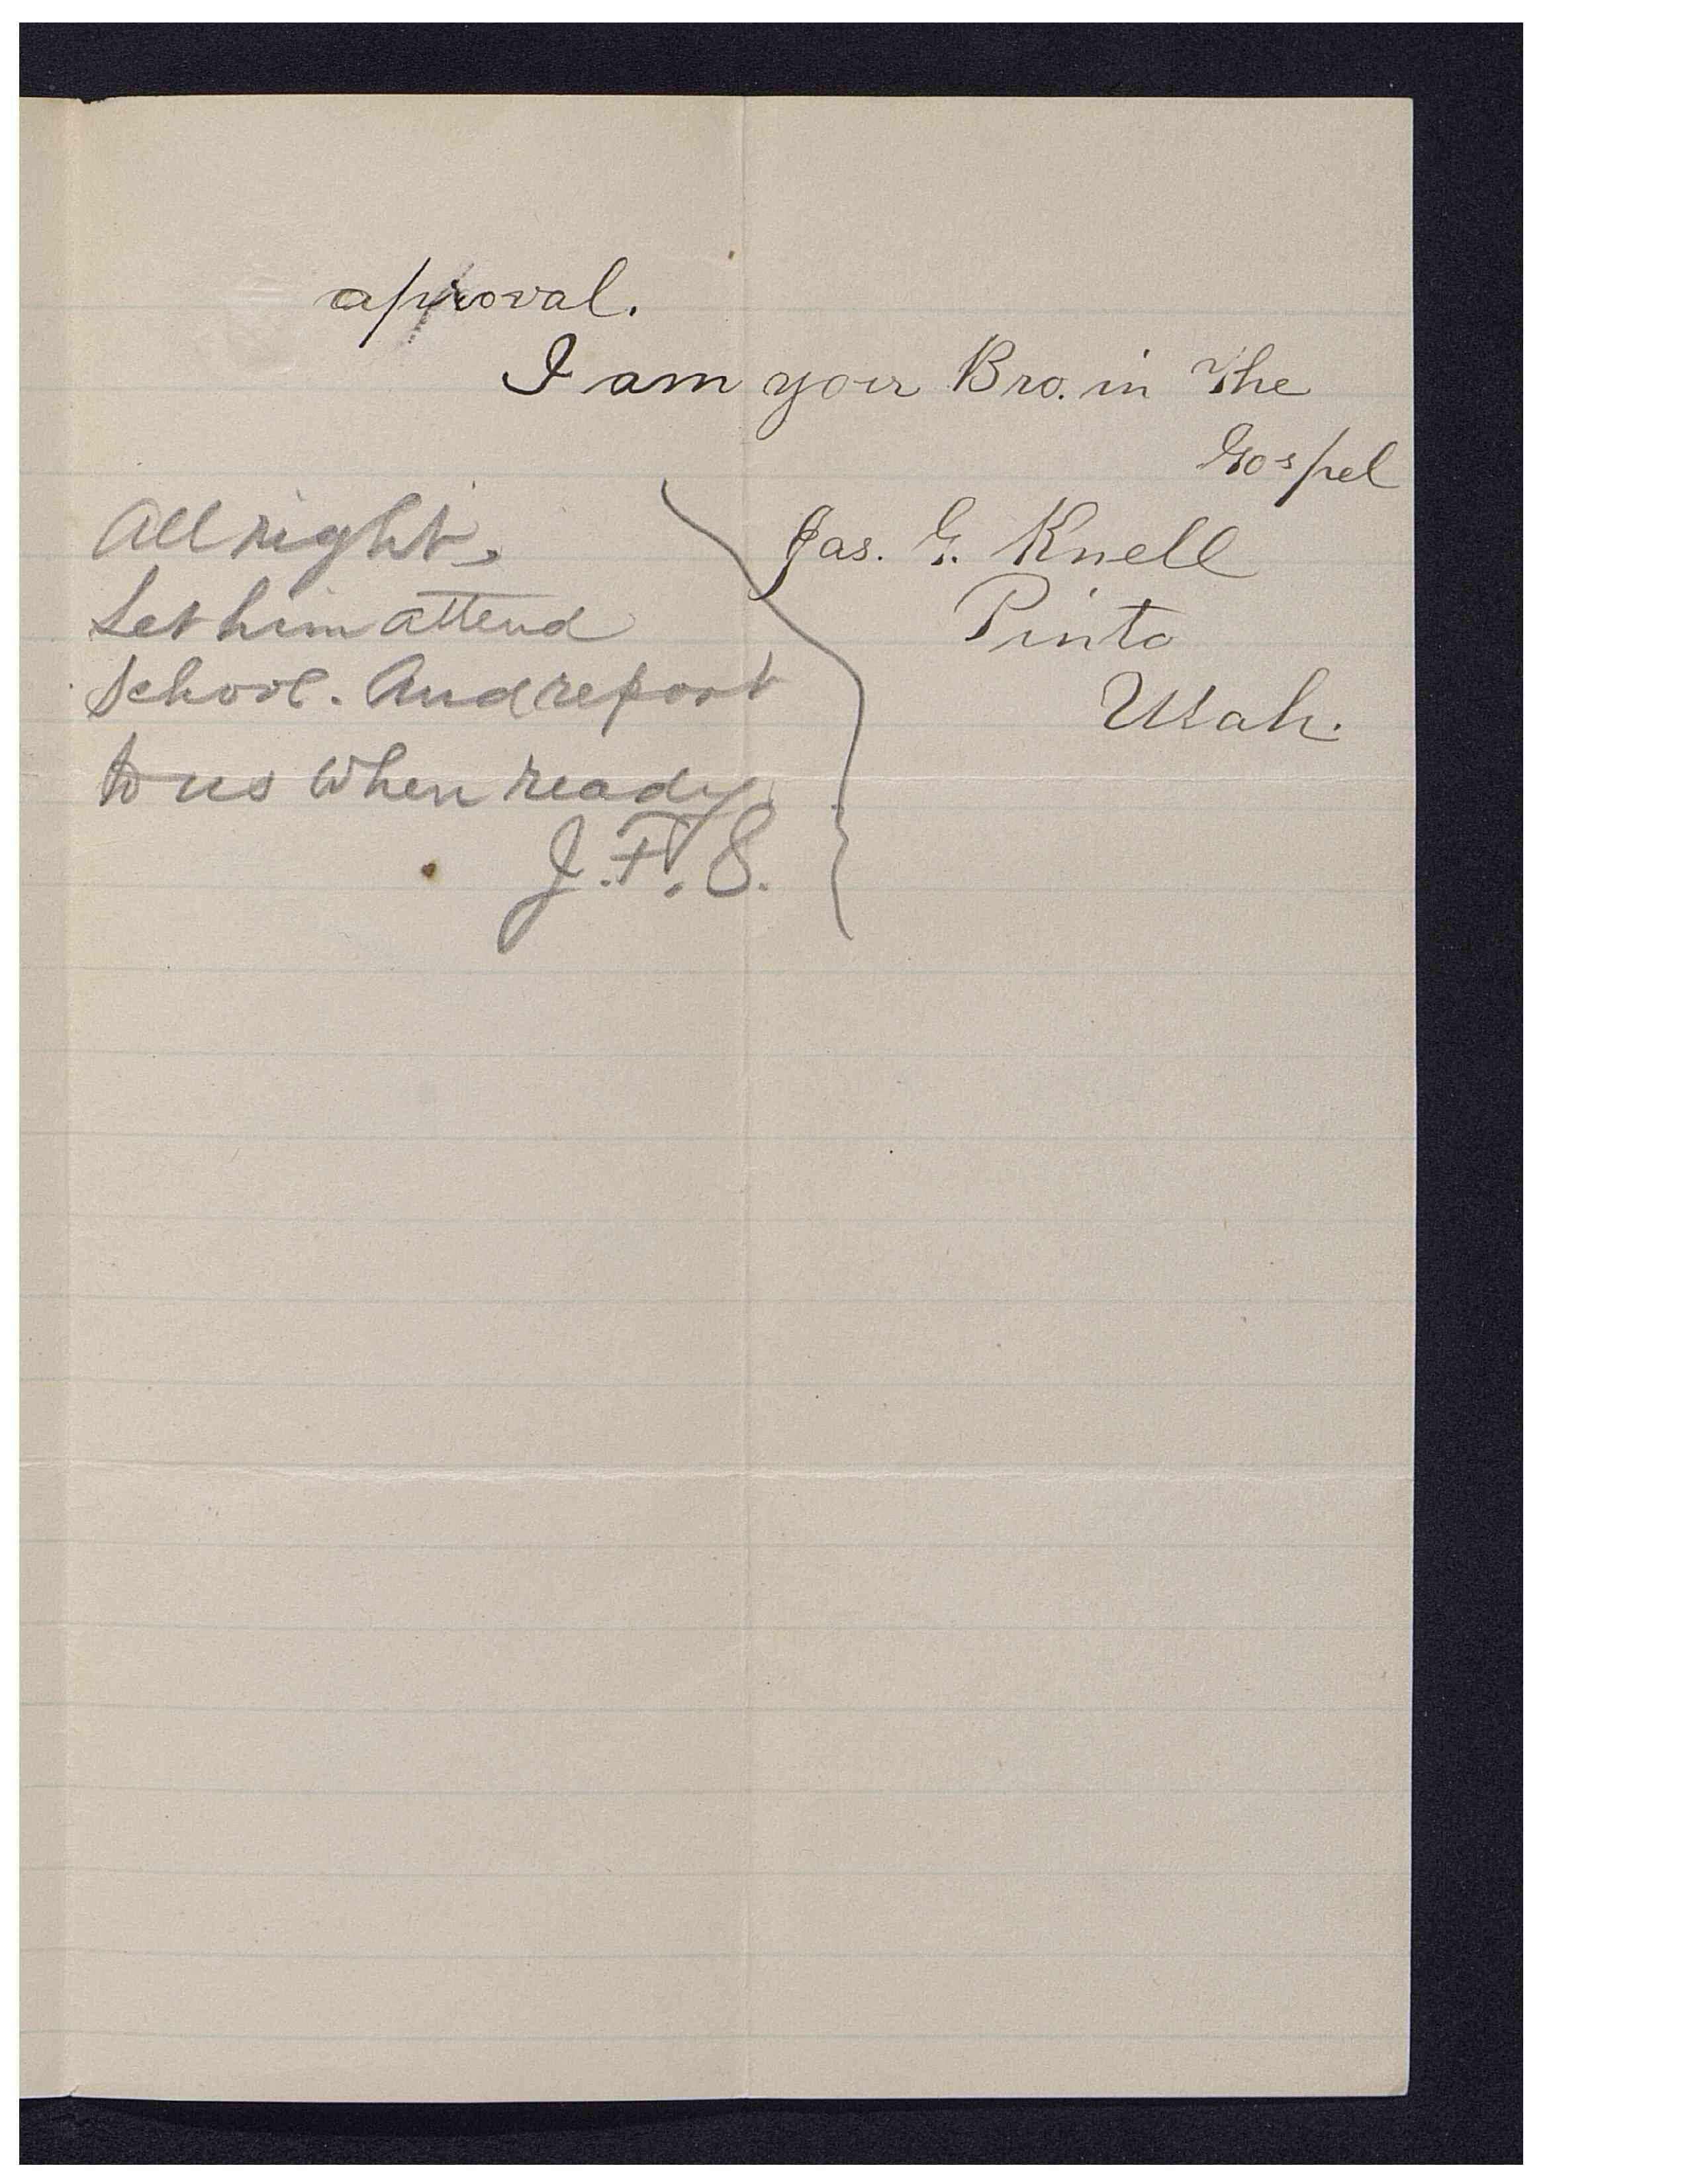 aproval.
I am your Bro. in the
Gospel
Jas. G. Knell
Pinto
Utah.
All right,
Let him attend
school. And report
to us when ready
J.F.S.